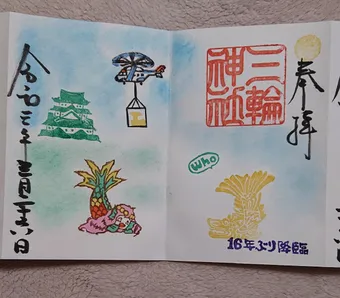 奉拝
三輪
神社
who
16年ぶり降臨
令和三年三月二十六日